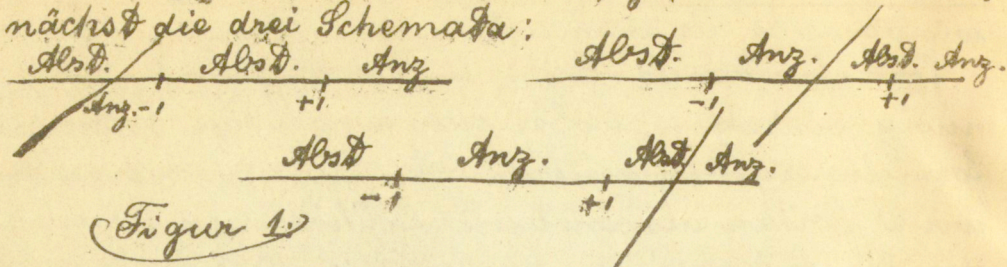 nächst die drei Schemata:
Abst. Abst. Anz
Anz. -1 +1
Abst. Anz. Abst. Anz.
-1 +1
Abst Anz. Abst Anz.
-1 +1
Figur 1.